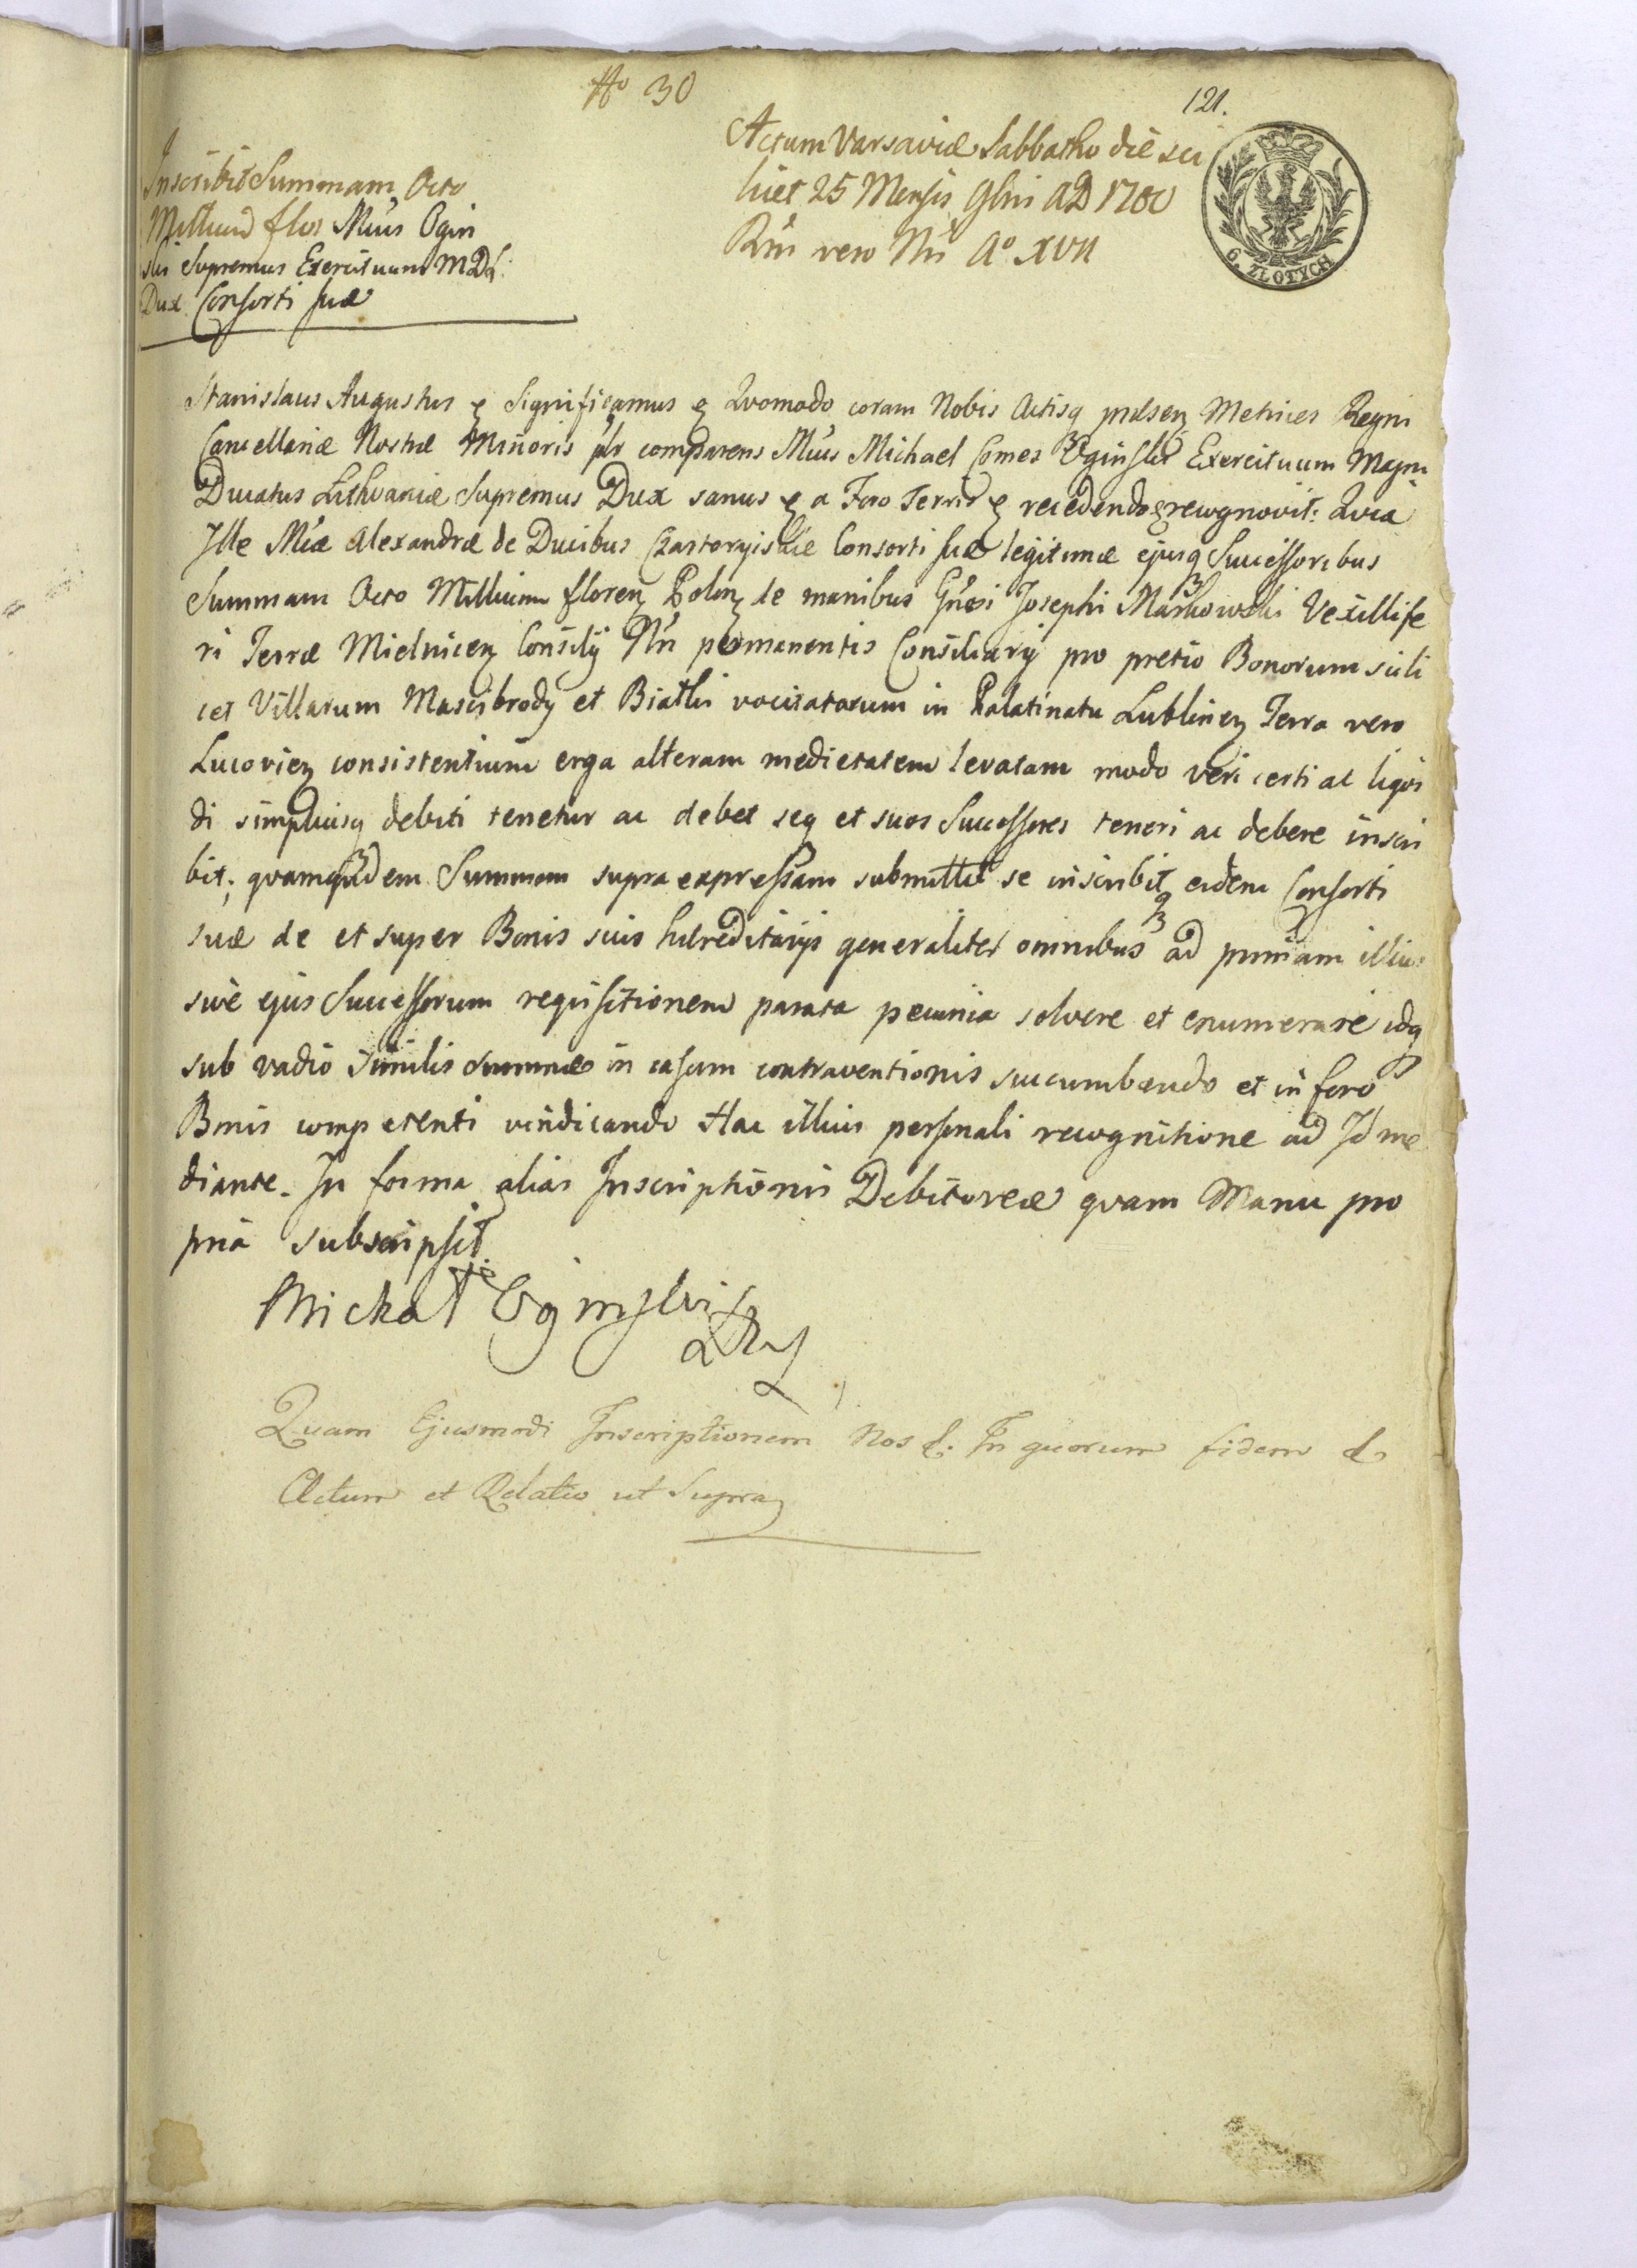 No 30
121.
Actum Varsaviæ Sabbatho die sci
licet 25 Mensis 9bris AD 1780
Rni vero Nri Ao XVII
6. ZŁOTYCH
Inscribit Summam Octo
Millium flor Mcus Ogin
ski Supremus Exercituum MDL.
Dux Consorti suæ
Stanislaus Augustus ꝛ Significamus ꝛ Quomodo coram Nobis Actisq præsen Metrices Regni
Cancellariæ Nostræ Minoris plr comparens Mcus Michael Comes Oginski Exercituum Magni
Ducatus Lithvaniæ Supremus Dux sanus ꝛ a Foro Terris ꝛ recedendo ꝛ recognovit: Quia
Ille Mcæ Alexandræ de Ducibus Czartoryiskie Consorti suæ legitimæ ejusq Successoribus
Summam Octo Millium floren Polon de manibus Gnosi Josephi Markowski Vexillife
ri Terræ Mielnicen Consilij Nri permanentis Consiliarij pro pretio Bonorum scili
cet Villarum Mascibrody et Biatki vocitatorum in Palatinatu Lublinen Terra vero
Lucovien consistentium erga alteram medietatem levatam modo veri certi ac liqvi
di simplicisq debiti tenetur ac debet seq et suos Successores teneri ac debere inscri
bit; qvamquidem Summam supra expressam submittit se inscribitq eidem Consorti
suæ de et super Bonis suis hæreditarijs generaliter omnibus ad primam illius
sive ejus Successorum reqvisitionem parata pecunia solvere et enumerare idq
sub vadio similis Summæ in casum contraventionis succumbendo et in foro
Bonis competenti vindicando Hac illius personali recognitione ad Id me
diante. In forma alias Inscriptionis Debitoreæ qvam Manu pro
pria subscripsit.
Michał Oginski
Quam Ejusmodi Inscriptionem Nos &. In quorum fidem &
Actum et Relatio ut Supra